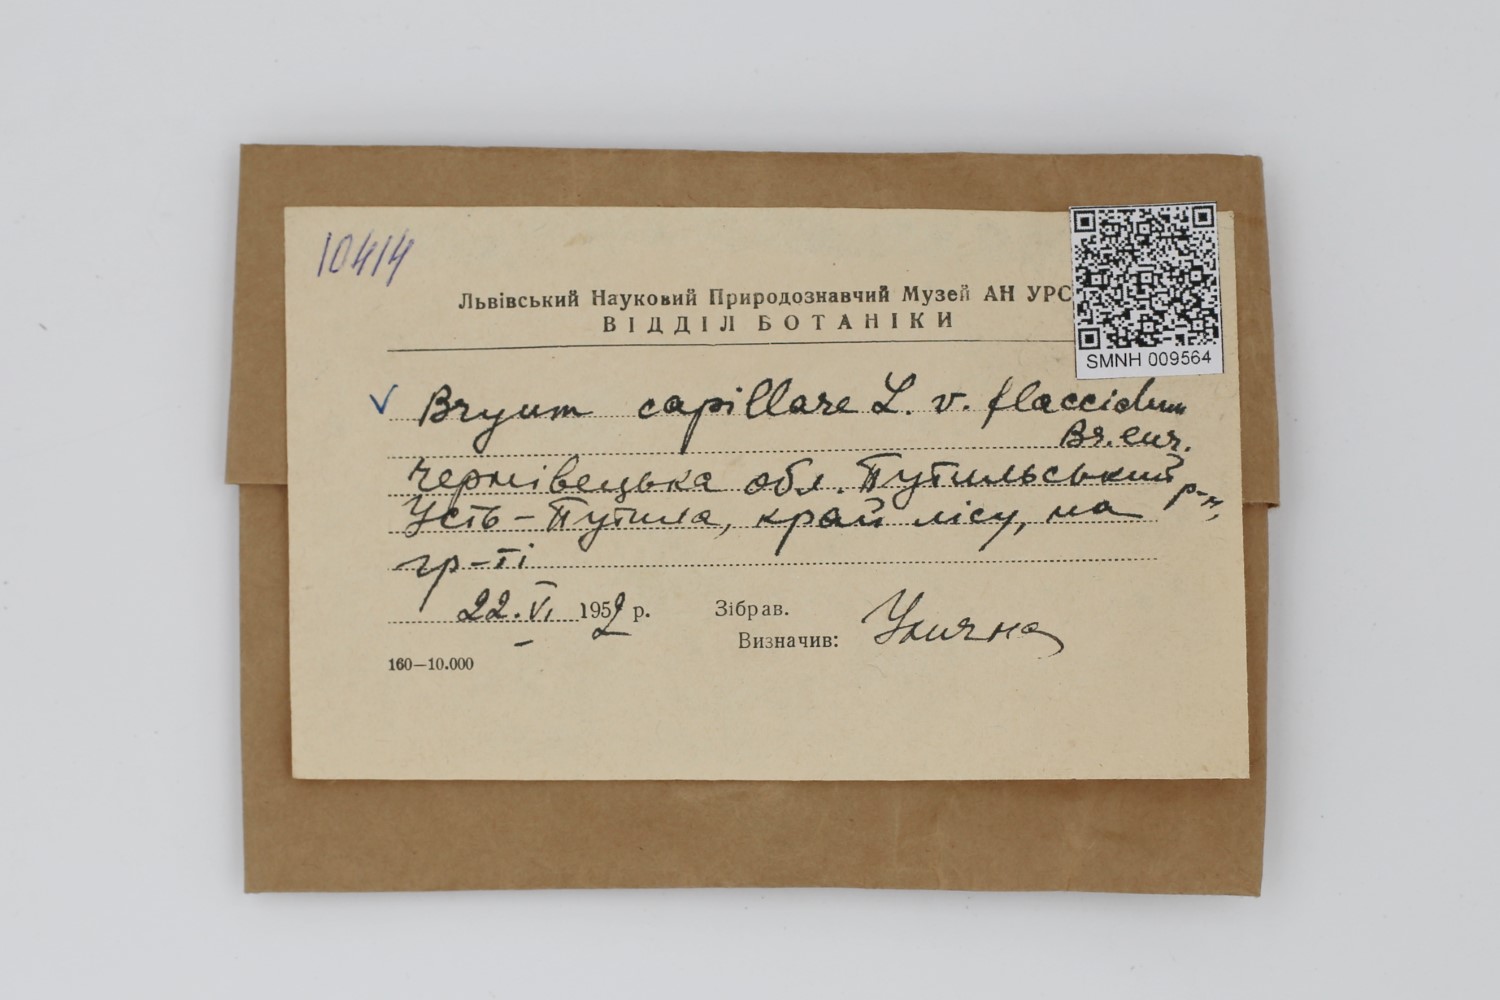 10414
Львівський Науковий Природознавчий Музей АН УРС
ВІДДІЛ БОТАНІКИ
SMNH 009564
V Bryum capillare L. v. flaccidum
Br. eur.
Чернівецька обл. Путильський р-н,
Усть-Путила, край лісу, на
гр-ті
22.VI 1952 р. Зібрав.
Визначив: Улична
160—10.000